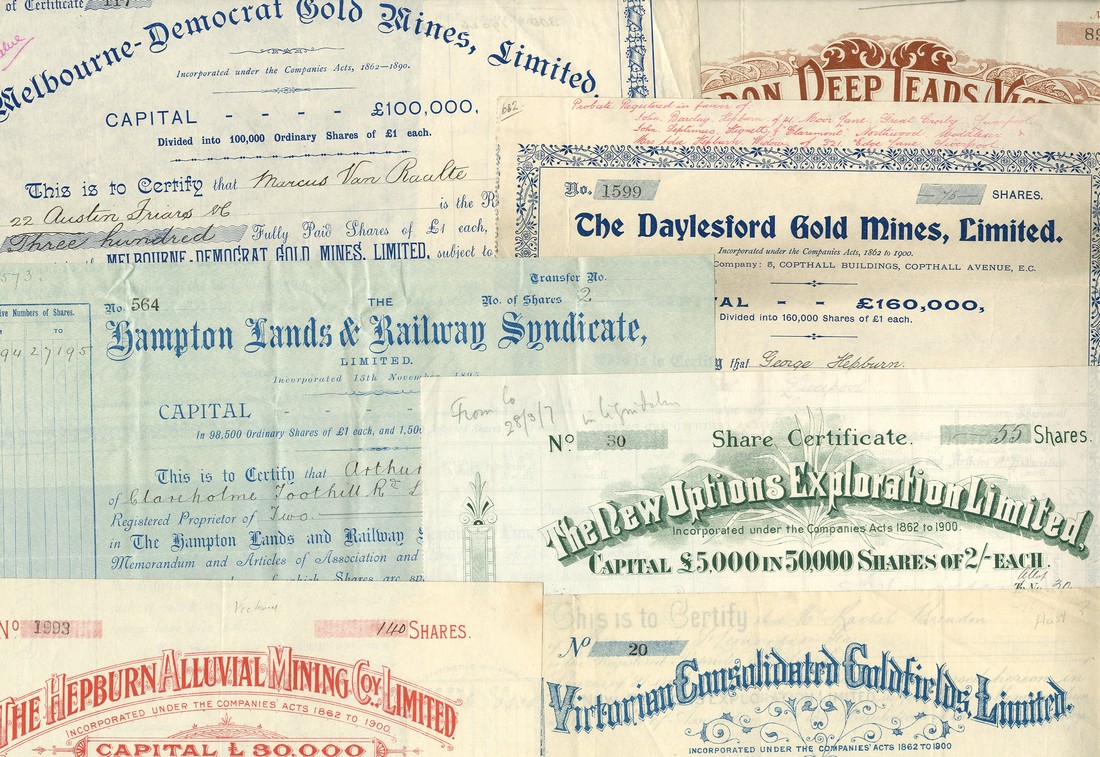 of Certificate 117
Melbourne-Democrat Gold Mines, Limited.
Incorporated under the Companies Acts, 1862—1890.
CAPITAL - - - - £100,000,
Divided into 100,000 Ordinary Shares of £1 each.
This is to Certify that Marcus Van Raalte
22 Austin Friars EC is the R
Three hundred Fully Paid Shares of £1 each,
MELBOURNE-DEMOCRAT GOLD MINES, LIMITED, subject to
89
DON DEEP LEADS (VICT
662
Probate Registered in favor of
John Barclay Hepburn of 41 Moor Lane, Great Crosby, Liverpool
John Septimus, "Claremont" Northwood, Middlesex &
Mrs Ada Hepburn Widow of 321 Edge Lane Liverpool
No. 1599 SHARES.
The Daylesford Gold Mines, Limited.
Incorporated under the Companies Acts, 1862 to 1900.
Company: 5, COPTHALL BUILDINGS, COPTHALL AVENUE, E.C.
AL - - £160,000,
Divided into 160,000 Shares of £1 each.
that George Hepburn.
Liverpool
573.
ive Numbers of Shares.
TO
94 27195
Transfer No.
No. 564 THE No. of Shares 2
Hampton Lands & Railway Syndicate,
LIMITED.
Incorporated 15th November 1895
CAPITAL - - -
In 98,500 Ordinary Shares of £1 each, and 1,50
This is to Certify that Arthur
of Clareholme Foothill Rd L
Registered Proprietor of Two
in The Hampton Lands and Railway S
Memorandum and Articles of Association and
of which Shares are sp
From Co in liquidation
28/3/7
No 30 Share Certificate. 55 Shares.
The New Options Exploration Limited.
Incorporated under the Companies Acts 1862 to 1900.
CAPITAL £5,000 IN 50,000 SHARES OF 2/- EACH.
Allot
To No. 30
Victoria
No 1993 140 SHARES.
THE HEPBURN ALLUVIAL MINING COY. LIMITED.
INCORPORATED UNDER THE COMPANIES' ACTS 1862 TO 1900.
CAPITAL £80,000
This is to Certify
No 20
Victorian Consolidated Goldfields, Limited.
INCORPORATED UNDER THE COMPANIES' ACTS 1862 TO 1900